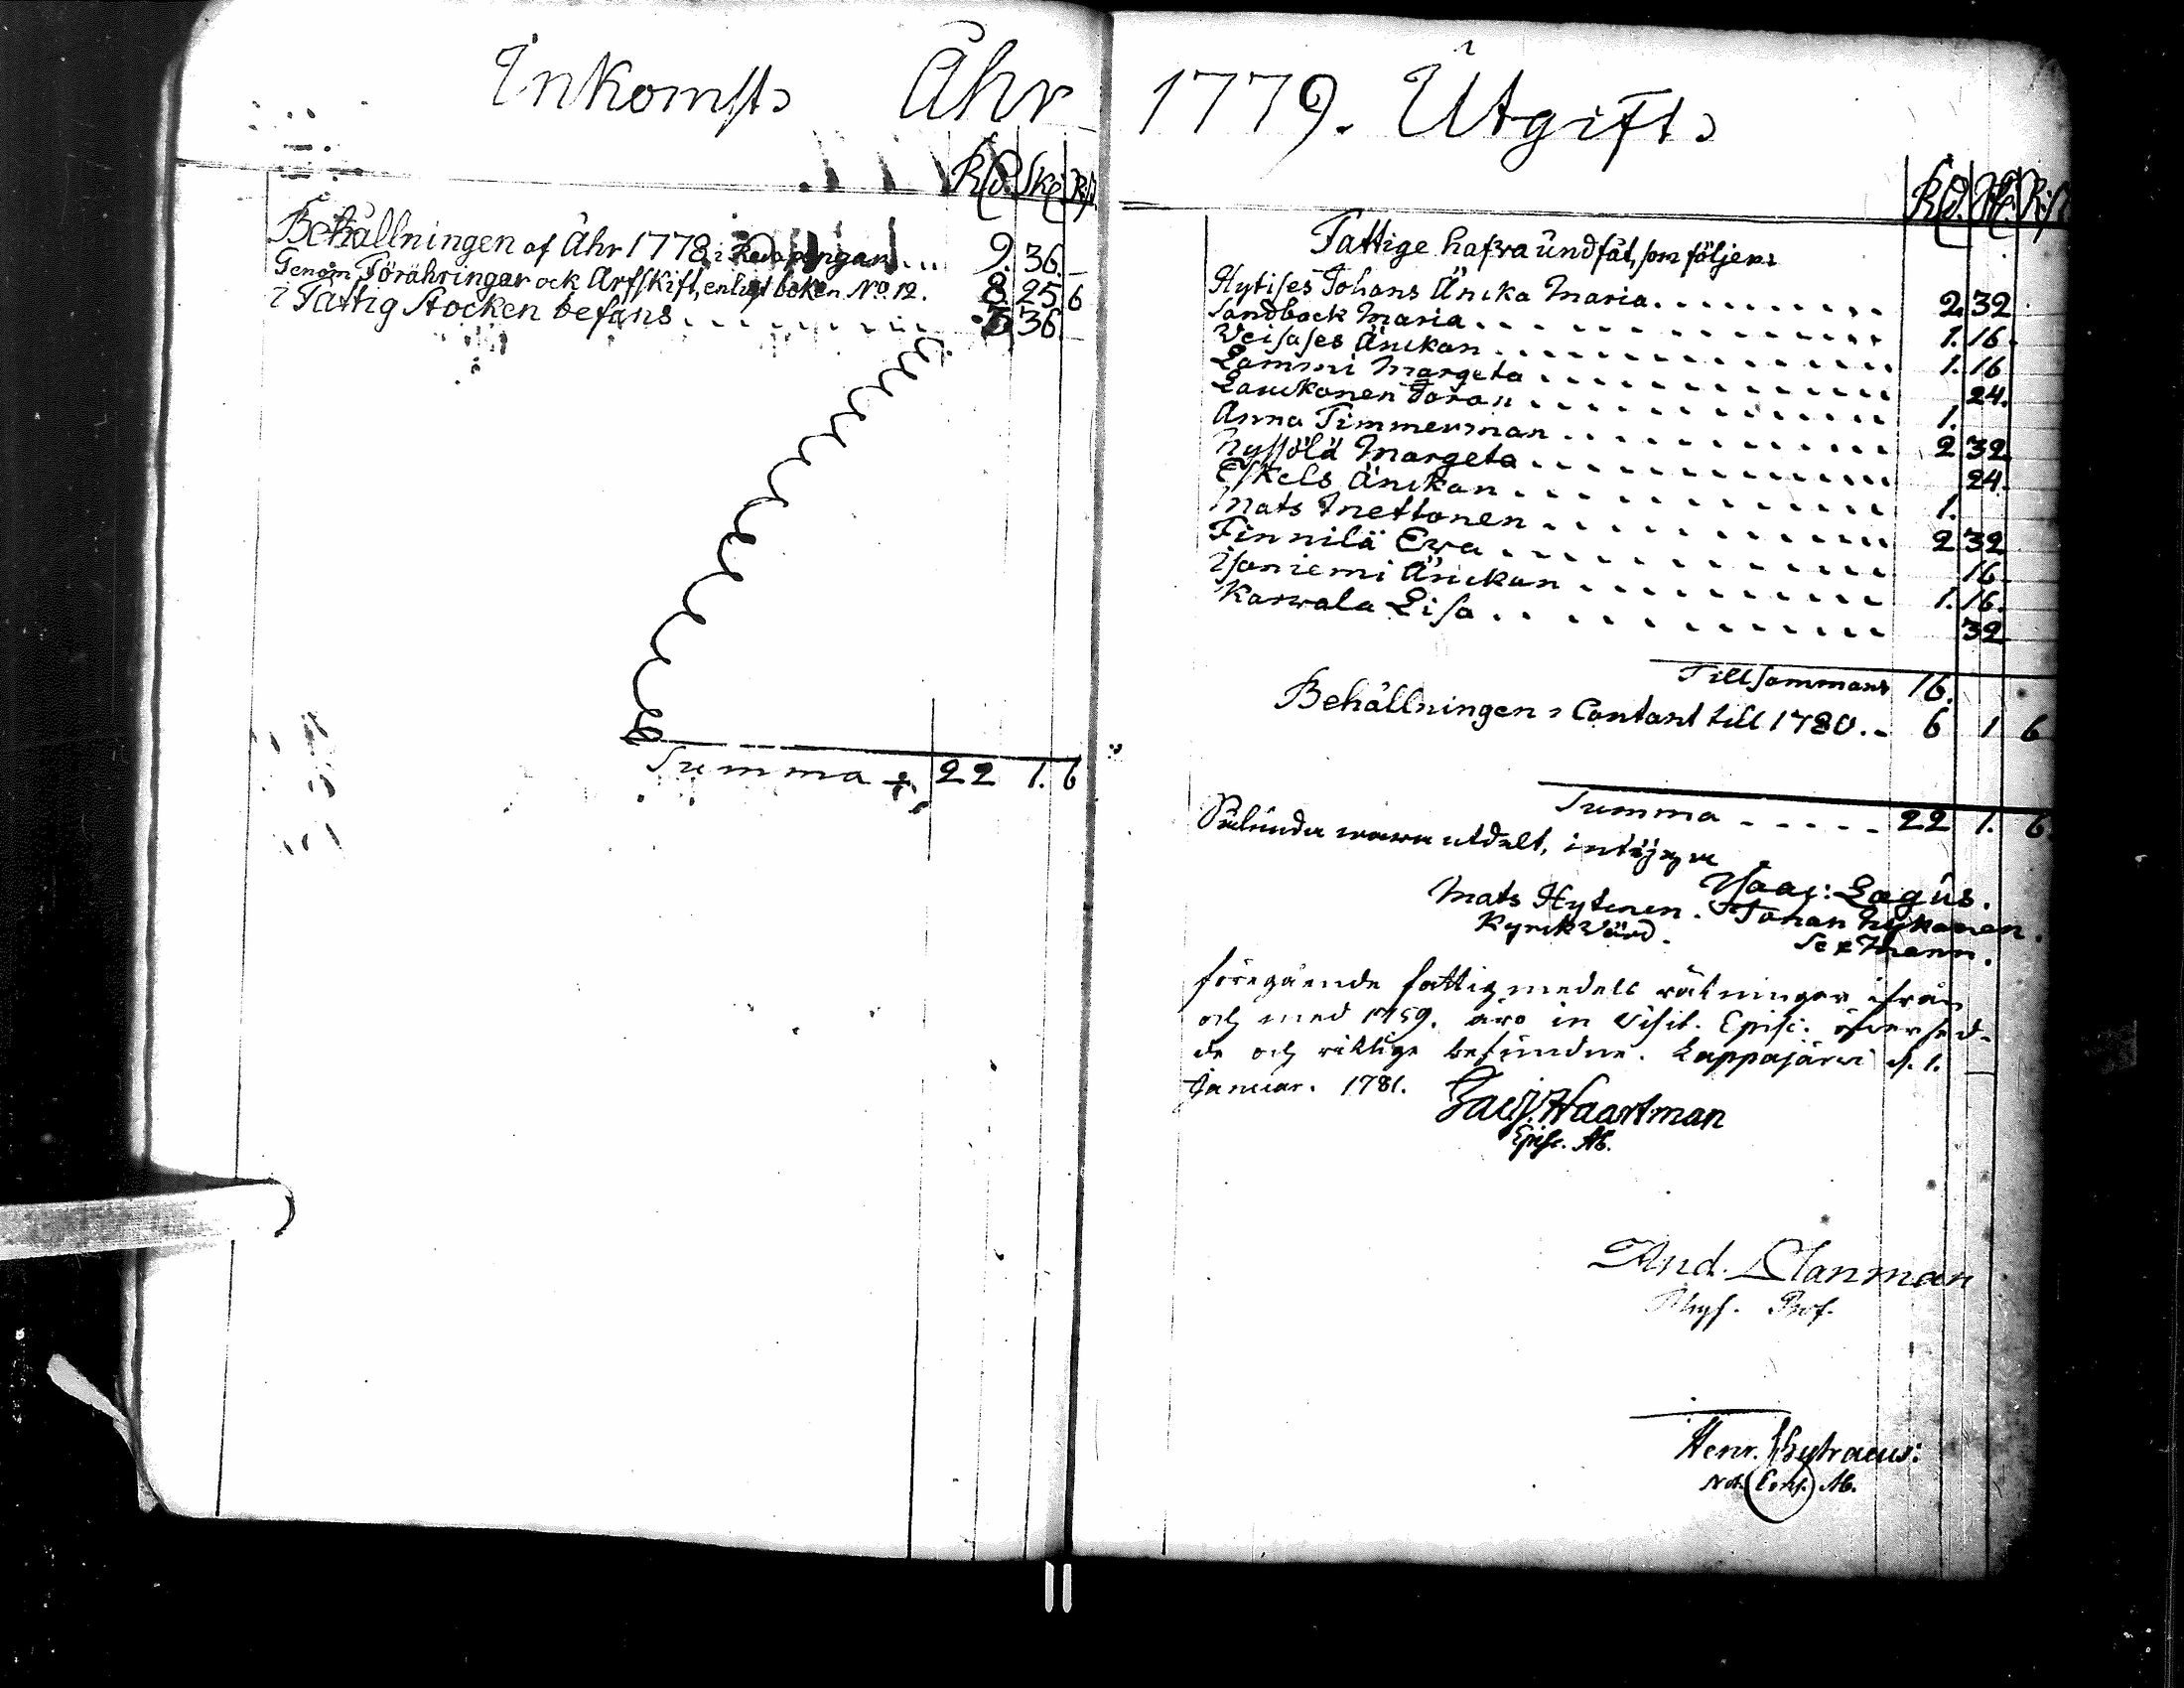 Inkomst Åhr
Rd. Ske R:st
Behållningen af Åhr 1778 i Reda pengar . . 9. 36. –
Genom Förähringar ock Arfskift, enligt boken No 12. 8 25 6
i Fattig Stocken befans . . . . . . . . 3 36
Summa 22 1. 6
1779. Utgift
Rd. Sk. R:st
Fattige hafva undfåt, som följer:
Hytises Johans Änka Maria . . . . . . . . 2. 32
Sandback Maria . . . . . . . . 1. 16.
Weisases Änckan . . . . . . . . 1. 16
Lammi Margeta . . . . . . . . 24.
Lauckonen Doran . . . . . . . . 1.
Anna Timmerman . . . . . . . . 2 32
Nyssölä Margeta . . . . . . . . 24.
Eskels Änckan . . . . . . . . 1.
Mats Mettonen . . . . . . . . 2 32
Finnilä Ewa . . . . . . . . 16.
Isoniemi Änckan . . . . . . . . 1. 16.
Karwala Lisa . . . . . . . . 32
Tillsommans 16.
Behållningen i Contant till 1780. . 6 1 6
Summa . . . . . 22 1. 6
Sålunda wara utdelt, intÿgar
Isaac: Lagus.
Mats Hytinen. Johan Nykänen.
KyrckWärd. SexMann.
föregående fattigmedels räkningar ifrån
och med 1759. äro in Visit. Episc. öfversed-
de och riktige befundne. Lappajärvi d. 1.
Januar. 1781.
Jac. Haartman
Episc. Ab.
And. Planman
Phys. Prof.
Henr. Chytraeus:
Not. Cons. Ab.